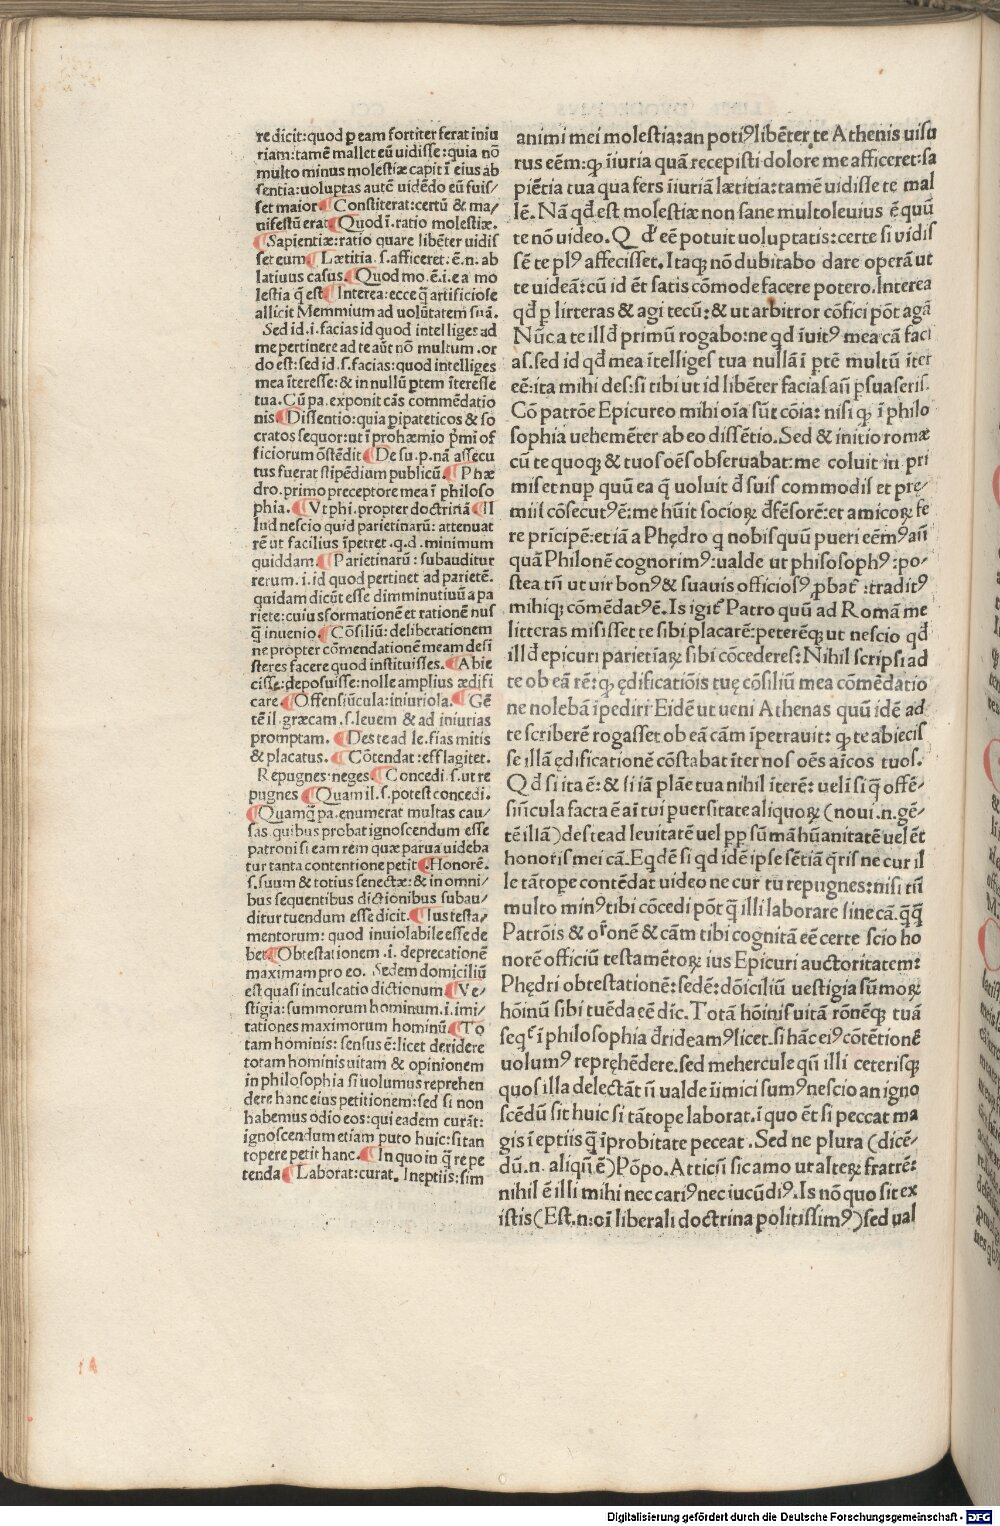 re dicit:quod ꝑ eam fortiter ferat iniu
riam:tamē mallet eū uidisse:quia nō
multo minus molestiæ capit ī eius ab
sentia:uoluptas autē uidēdo eū fuis/
set maior. Constiterat:certū & ma/
nifestū erat. Quod ī.ratio molestiæ.
Sapientiæ:ratio quare libēter uidis
set eum. Lætitia.s.afficeret.ē.n.ab
latiuus casus. Quod mo.ē.i.e a mo
lestia q̄ est. Interea:ecce q̄ artificiose
allicit Memmium ad uolūtatem suā.
Sed id.i.facias id quod intelliges ad
me pertinere ad te aūt nō multum.or
do est:sed id.s.facias:quod intelliges
mea īteresse:& in nullū ꝑtem īteresse
tua. Cū pa.exponit cās commēdatio
nis. Dissentio:quia pipateticos & so
cratos sequor:ut ī prohæmio pⁱmi of
ficiorum ōstēdit. De su.p.nā assecu
tus fuerat stipēdium publicū. Phæ
dro.primo preceptore mea ī philoso
phia. Vt phi.propter doctrinā. Il
lud nescio quid parietinarū: attenuat
rē ut facilius īpetret.q.d.minimum
quiddam. Parietinarū: subauditur
rerum.i.id quod pertinet ad parietē.
quidam dicūt esse dimminutiuū a pa
riete:cuius formationē et rationē nus
q̄ inuenio. Cōsiliū:deliberationem
ne propter cōmendationē meam desi
steres facere quod instituisses. Abie
cisse:deposuisse:nolle amplius ædifi
care. Offensiūcula:iniuriola. Gē
tē il.græcam.s.leuem & ad iniurias
promptam. Des te ad le.fias mitis
& placatus. Cōtendat:efflagitet.
Repugnes:neges. Concedi.s.ut re
pugnes. Quam il.s.potest concedi.
Quamq̄ pa.enumerat multas cau/
sas quibus probat ignoscendum esse
patroni si eam rem quæ parua uideba
tur tanta contentione petit. Honorē.
s.suum & totius senectæ:& in omni/
bus sequentibus dictionibus subau/
ditur tuendum esse dicit. Ius testa/
mentorum: quod inuiolabile esse de
bet. Obtestationem.i.deprecationē
maximam pro eo. Sedem domiciliū
est quasi inculcatio dictionum. Ve/
stigia:summorum hominum.i.imi/
tationes maximorum hominū. To
tam hominis: sensus ē:licet deridere
totam hominis uitam & opinionem
in philosophia si uolumus reprehen
dere hanc eius petitionem:sed si non
habemus odio eos:qui eadem curāt:
ignoscendum etiam puto huic:si tan
topere petit hanc. In quo in q̄ re pe
tenda. Laborat:curat. Ineptiis:sim
animi mei molestia:an potiꝰ libēter te Athenis uisu
rus eēm:ꝙ īiuria quā recepisti dolore me afficeret:sa
piētia tua qua fers īiuriā lætitia:tamē uidisse te mal
lē. Nā qđ est molestiæ non sane multo leuius ē quū
te nō uideo. Qđ eē potuit uoluptatis:certe si uidis
sē te plꝰ affecisset. Itaqꝫ nō dubitabo dare operā ut
te uideā:cū id ēt satis cōmode facere potero. Interea
qđ p litteras & agi tecū:& ut arbitror cōfici pōt agā
Nūc a te illđ primū rogabo:ne qd īuitꝰ mea cā faci
as.sed id qđ mea ītelliges tua nullā ī ꝑtē multū īter
eē:ita mihi des:si tibi ut id libēter facias aň ꝑsuaseris.
Cō patrōe Epicureo mihi oīa sūt cōia: nisi ꝙ ī philo
sophia uehemēter ab eo dissētio. Sed & initio romæ
cū te quoqꝫ & tuos oēs obseruabat:me coluit in pri
mis et nuꝑ quū ea q̄ uoluit đ suis commodis et pre/
miis cōsecutꝰ ē:me hūit socioꝝ đfēsorē:et amicoꝝ fe
re pricipē:et iā a Phędro q nobis quū pueri eēmꝰ aň
quā Philonē cognorimꝰ:ualde ut phisosophꝰ:po/
stea tň ut uir bonꝰ & suauis officiosꝰ ꝓbat̄ :traditꝰ
mihiqꝫ cōmēdatꝰ ē. Is igit̄ Patro quū ad Romā me
litteras misisset te sibi placarē:peterēqꝫ ut nescio qđ
illđ epicuri parietīaꝝ sibi cōcederes: Nihil scripsi ad
te ob eā rē:ꝙ ędificatiōis tuę cōsiliū mea cōmēdatio
ne nolebā īpediri Eidē ut ueni Athenas quū idē ad
te scriberē rogasset ob eā cām īpetrauit: ꝙ te abiecis
se illā ędificationē cōstabat īter nos oēs aīcos tuos.
Qđ si ita ē:& si iā plāe tua nihil īterē: uelī si q̄ offē/
siūcula facta ē aī tui puersitate aliquoꝝ (noui.n.gē/
tē illā) des te ad leuitatē uel pp sū mā hūanitatē uel ēt
honoris mei cā. Eqdē si qd idē ipse sētiā q̄ris ne cur il
le tātope contēdat uideo ne cur tu repugnes:nisi tň
multo minꝰ tibi cōcedi pōt q̄ illi laborare sine cā.q̄q̄
Patrōis & oʳonē & cām tibi cognitā eē certe scio ho
norē officiū testamētoꝝ ius Epicuri auctoritatem:
Phędri obtestationē:sedē:dōiciliū uestigia sūmoꝝ
hōinū sibi tuēda eē dic. Totā hōinis uitā rōnēqꝫ tuā
seqⁱ ī philosophia đrideamꝰ licet.si hāc eiꝰ cōtētionē
uolumꝰ repręhēdere.sed mehercule qň illi ceterisqꝫ
quos illa delectāt ň ualde īimici sumꝰ nescio an igno
scēdū sit huic si tātope laborat.ī quo ēt si peccat ma
gis ī eptiis q̄ īprobitate peceat. Sed ne plura (dicē/
dū.n. aliqň ē) Pōpo. Atticū sic amo ut alteꝝ fratrē:
nihil ē illi mihi nec cariꝰ nec iucūdiꝰ. Is nō quo sit ex
istis (Est.n:oī liberali doctrina politissimꝰ) sed ual
Digitalisierung gefördert durch die Deutsche Forschungsgemeinschaft - DFG